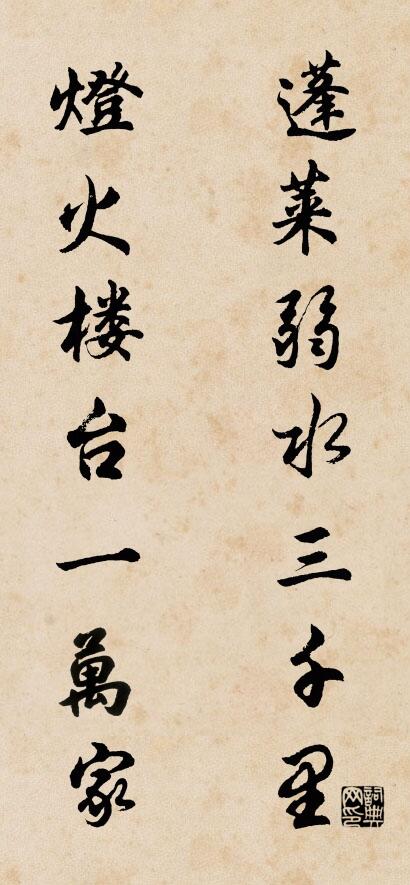 蓬莱弱水三千里
燈火楼台一萬家
詞典网印